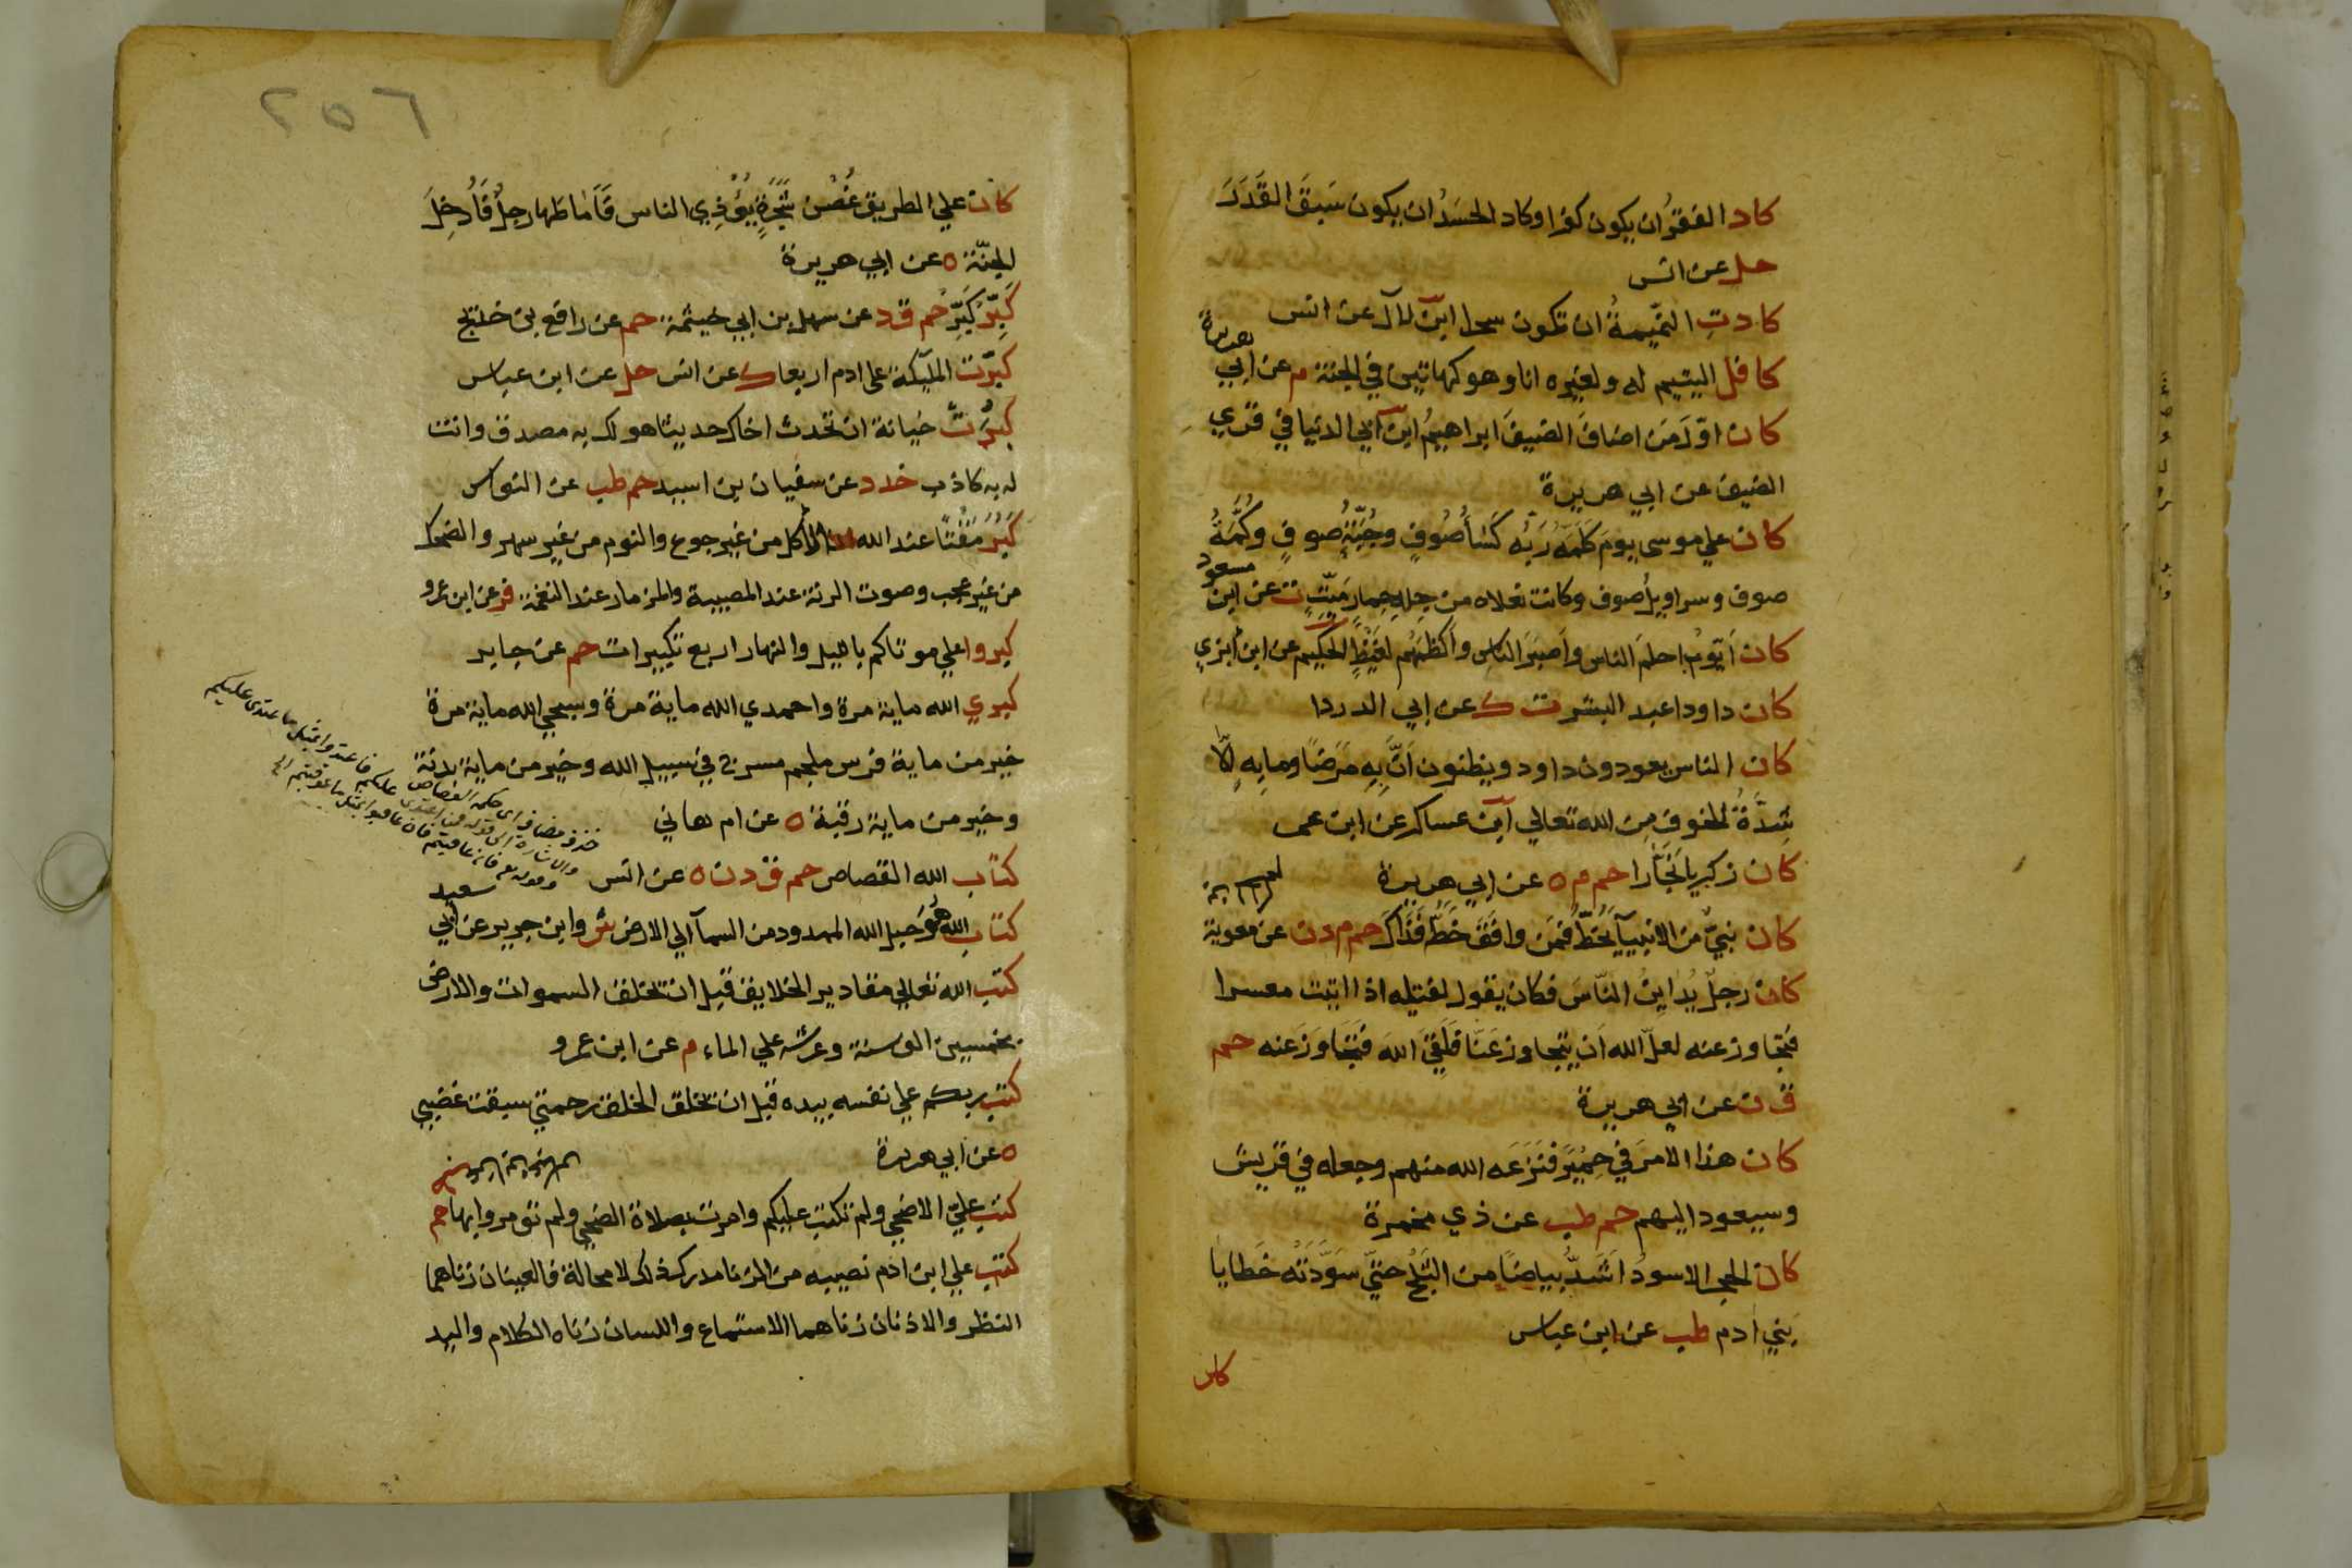 كاد الفقر ان يكون كفرا وكاد الحَسَدُ ان يكون سَبَقَ القَدَرَ
حل عن انس
كادتِ النميمةُ ان تكون سحرا ابن لال عن انس
كافل اليتيم له ولغيره انا وهو كهاتين في الجنة م عن ابي
هريرة
كان اوّلَ مَن اضافَ الضيفَ ابراهيمُ ابن ابي الدنيا في قري
الضيف عن ابي هريرة
كان علي موسى يومَ كَلَّمَهُ رَبُّه كَسَأُ صُوفٍ وجُبّةُ صوفٍ وكُمَّةُ
صوف وسراويلُ صوف وكانت نعلاه من جلد حِمار مَيّتٍ ت عن ابن
مسعود
كان أيّوبُ احلمَ الناس وأصبَرَ الناس وأكظمَهُم لغَيْظٍ الحكيم عن ابن ابزي
كان داود اعبد البشر ت ك عن ابي الدردا
كان الناس يعودون داود ويظنون أنَّ بِهِ مَرَضًا وما بِهِ إلّا
شِدَّةُ الخوفِ مِن الله تعالي ابن عساكر عن ابن عمر
كان زكريا نَجّارا حم م ه عن ابي هريرة
كان نبيٌّ مِن الانبيآ يَخُطُّ فمَن وافَقَ خَطَّه فَذَاكَ حم م د ن عن معوية
كان رجلٌ يُدايِنُ النّاسَ فكان يقول لفتيله اذا اتيت معسرا
فتجاوز عنه لعلّ الله اَن يتجاوز عَنّا فَلَقِيَ اللهَ فتَجَاوَزَ عنه حم
ق ن عن ابي هريرة
كان هذا الامرَ في حِمْيَرَ فنَزَعَه الله منهم وجعله في قريش
وسيعود اليهم حم طب عن ذي مخمرة
كان الحجر الاسودُ اشَدُّ بياضًا من الثَّلْج حتيّ سَوَّدَتْه خَطايا
بَنِي ادم طب عن ابن عباس
كان
٢٥٦
كان علي الطريق غُصْن شَجَرَةٍ يُؤْذِي الناس فَاَماطَها رجلٌ فَأُدخِلَ
الجنّة ه عن ابي هريرة
كَبِّرْ كَبِّرْ حم ق د عن سهل بن ابي حيثمة حم عن رافع بن خديج
كبّرت المليكة على ادم اربعا ك عن انس حل عن ابن عباس
كبُرَتْ خيانة ان تحدث اخاك حديثا هو لك به مصدق وانت
له به كاذب خد د عن سفيان بن اسيد حم طب عن النواس
كَبُرَ مَقْتًا عند الله الأكل من غير جوع والنوم من غير سهر والضحك
من غير عجب وصوت الرنة عند المصيبة والمزمار عند النغمة فر عن ابن عمرو
كبروا علي موتاكم بالليل والنهار اربع تكبيرات حم عن جابر
كبري الله ماية مرة واحمدي الله ماية مرة وسبحي الله ماية مرة
خير من ماية فرس ملجم مسرج في سبيل الله وخير من ماية بدنة
وخير من ماية رقبة ه عن ام هاني
كتاب الله القصاص حم ق د ن ه عن انس
حذف مضاف اى حكم القصاص
فاعتدوا بمثل ما اعتدى عليكم
كتاب الله هو حَبل الله الممدود من السمآ الي الارض ش وابن جرير عن أبي
سعيد
كتب الله تعالي مقادير الخلايق قبل ان تخلف السموات والارض
بخمسين الف سنة وعرشه علي الماء م عن ابن عمرو
كتب ربكم علي نفسه بيده قبل ان تخلق الخلق رحمتي سبقت غضبي
ه عن أبي هريرة
كتب عليّ الاضحي ولم تكتب عليكم وامرت بصلاة الضحي ولم تؤمروا بها حم
كتب علي ابن ادم نصيبه من الزنا مدرك ذلك لا محالة فالعينان زناهما
النظر والاذنان زناهما الاستماع واللسان زناه الكلام واليد